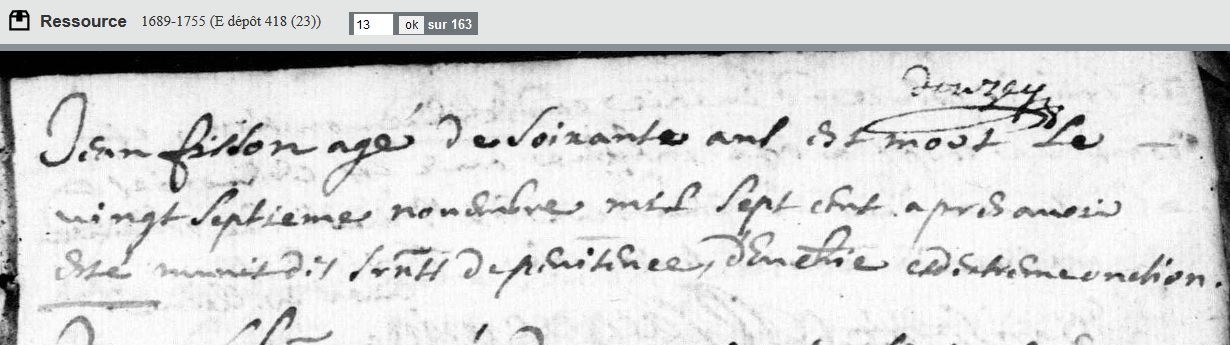 Ressource 1689-1755 (E dépôt 418 (23)) 13 ok sur 163
douzey
Jean fisson agé de soixante ans est mort le
vingt septieme nouembre mil sept cent apres auoir
esté munit des srnts de penitence, d'Eucherie et d'extreme onction.